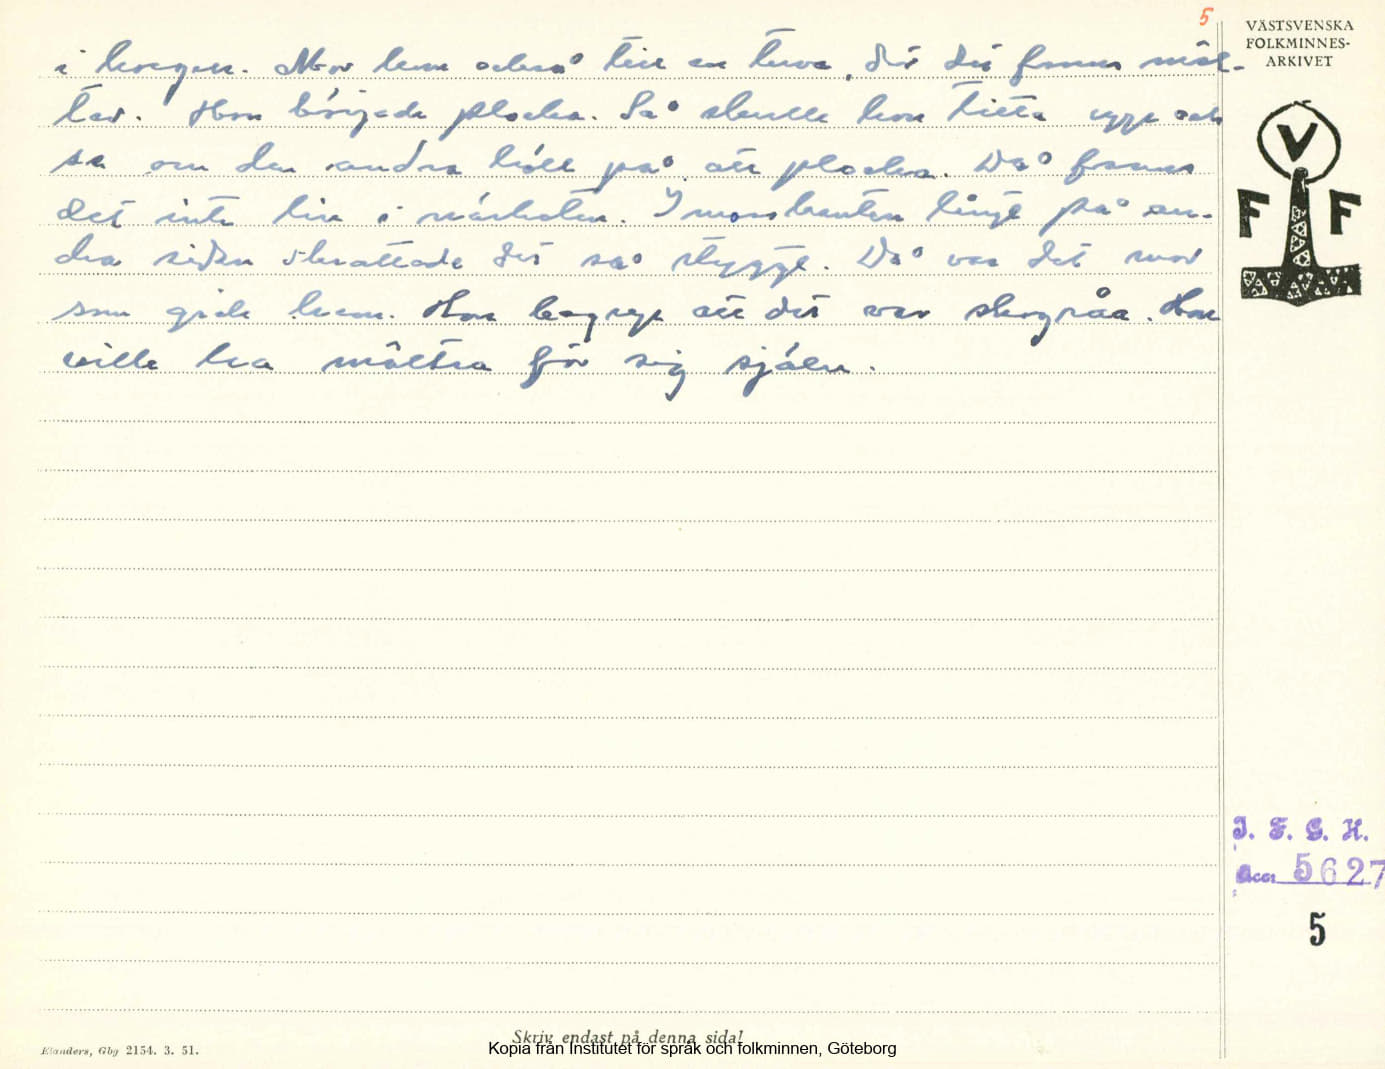 5
VÄSTSVENSKA
FOLKMINNES-
ARKIVET
i korgen. Mor kom också till en tuva, där det fanns mål-
tar. Hon började plocka. Så skulle hon titta upp och
se om den andra höll på att plocka. Då fanns
det inte lin i närheten. I mosskanten långt på an-
dra sidan skrattade det så styggt. Då var det mor
som gick hem. Hon begrep att det var skogråa. Hon
ville ha måltra för sig själv.
V
F F
I. F. G. H.
acc: 5627
5
Elanders, Gbg 2154. 3. 51.
Skriv endast på denna sida!
Kopia från Institutet för språk och folkminnen, Göteborg